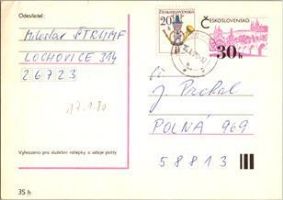 Odesílatel:
Miloslav ŠTRUMF
LOCHOVICE 314
26723
17.1.80
Vyhrazeno pro služební nálepky a údaje pošty
35 h
20
ČESKOSLOVENSKO
ČESKOSLOVENSKO
30h
J. Prokol
POLNÁ 969
58813